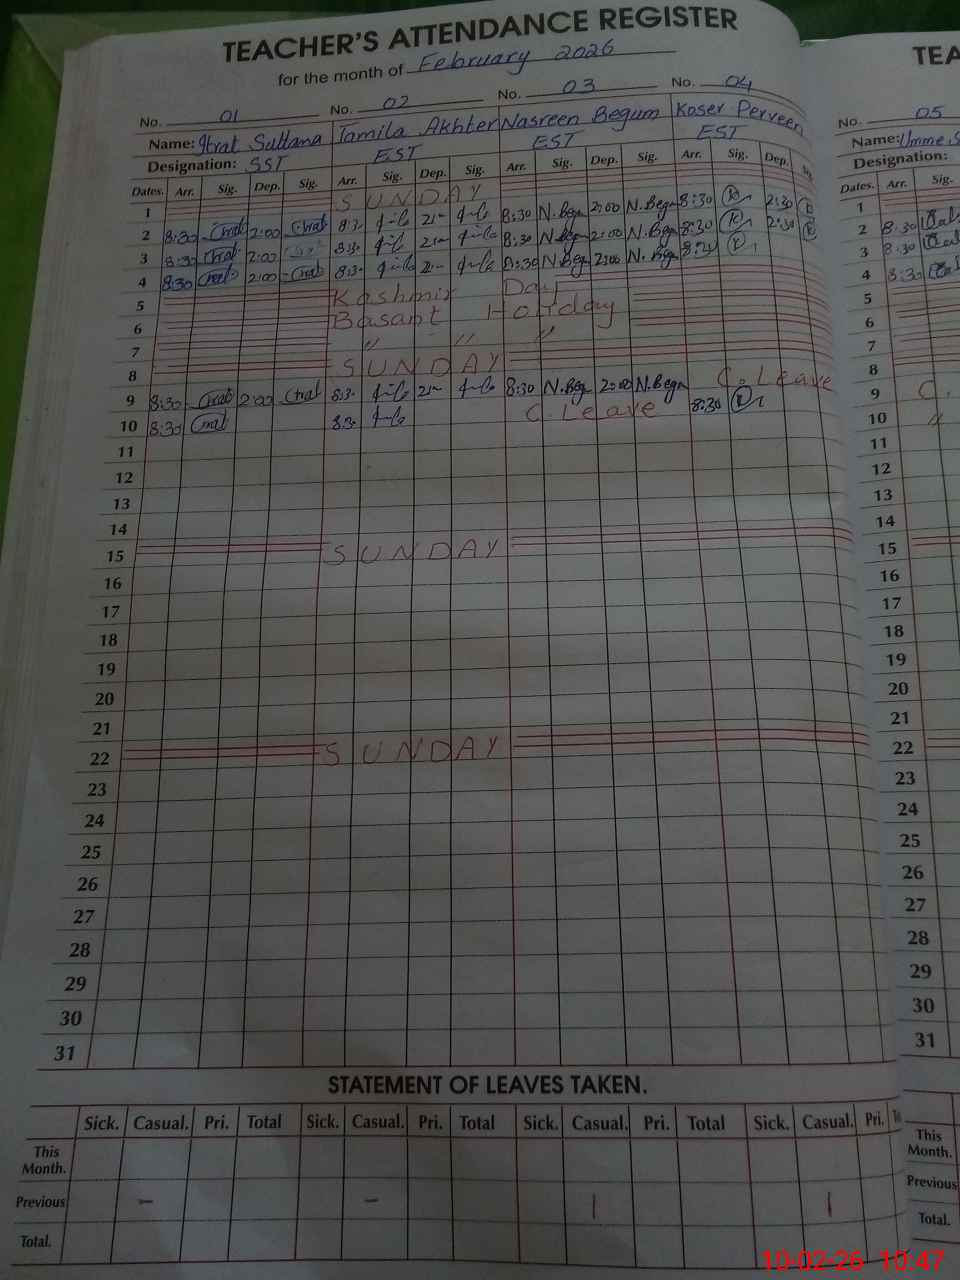 TEACHER'S ATTENDANCE REGISTER
for the month of February 2026
No. 01 No. 02 No. 03 No. 04
Name: Itrat Sultana Tamila Akhter Nasreen Begum Koser Perveen
Designation: SST EST EST EST
Dates. Arr. Sig. Dep. Sig. Arr. Sig. Dep. Sig. Arr. Sig. Dep. Sig. Arr. Sig. Dep.
1 SUNDAY
2 8:30 2:00 8:30 N.Beg 2:00 N.Beg 8:30 2:30
3 8:30 2:00 8:30 N.Beg 2:00 N.Beg 8:30 2:30
4 8:30 2:00 8:30 N.Beg 2:00 N.Beg
5 Kashmir Day
6 Basant Holiday
7 " " "
8 SUNDAY
9 8:30 2:00 8:30 N.Beg 2:00 N.Beg C. Leave
10 8:30 C. Leave 8:30
11
12
13
14
15 SUNDAY
16
17
18
19
20
21
22 SUNDAY
23
24
25
26
27
28
29
30
31
STATEMENT OF LEAVES TAKEN.
Sick. Casual. Pri. Total Sick. Casual. Pri. Total Sick. Casual. Pri. Total Sick. Casual. Pri.
This
Month.
Previous - - 1 1
Total.
TEA
No. 05
Name: Umme S
Designation:
Dates. Arr. Sig.
1
2 8:30
3 8:30
4 8:30
5
6
7
8
9 C.
10 "
11
12
13
14
15
16
17
18
19
20
21
22
23
24
25
26
27
28
29
30
31
This
Month.
Previous
Total.
10-02-26 10:47